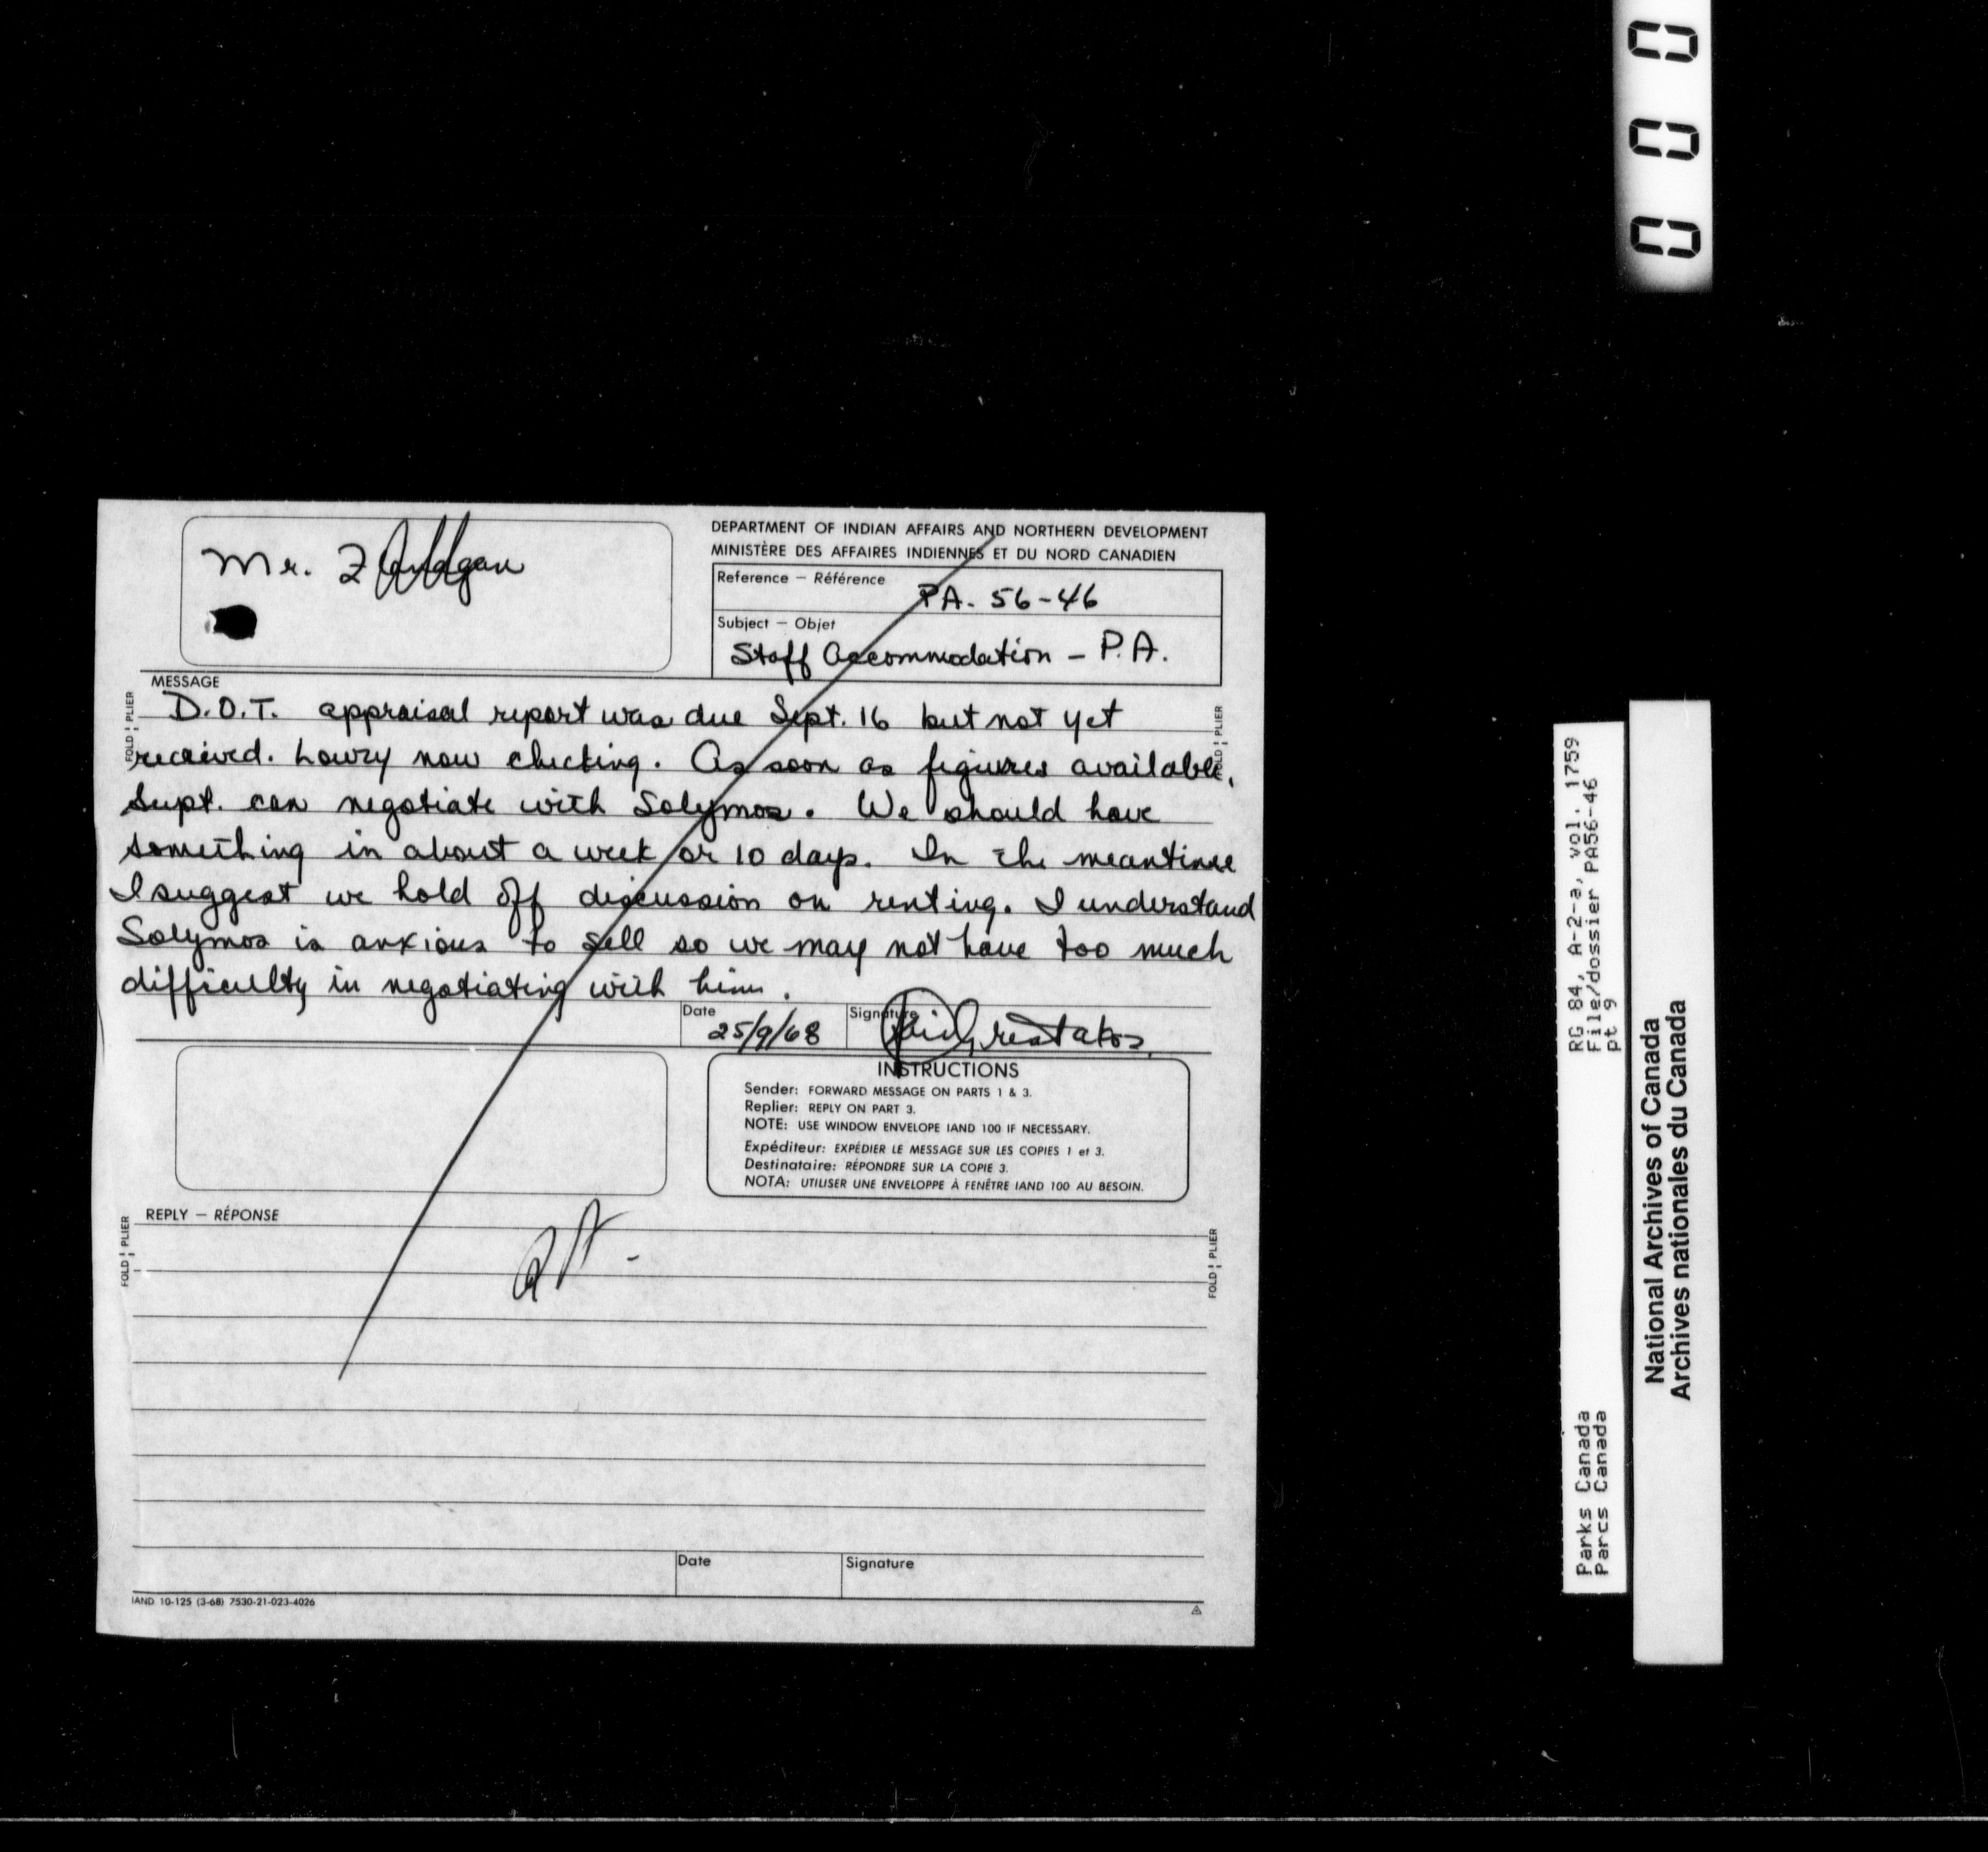 Mr.
DEPARTMENT OF INDIAN AFFAIRS AND NORTHERN DEVELOPMENT
MINISTÈRE DES AFFAIRES INDIENNES ET DU NORD CANADIEN
Reference – Référence
PA. 56-46
Subject – Objet
Staff Accommodation – P.A.
MESSAGE
FOLD PLIER
FOLD PLIER
D.O.T. appraisal report was due Sept. 16 but not yet
received. Lowry now checking. As soon as figures available,
Supt. can negotiate with Solymos. We should have
something in about a week or 10 days. In the meantime
I suggest we hold off discussion on renting. I understand
Solymos is anxious to sell so we may not have too much
difficulty in negotiating with him.
Date
25/9/68
Signature
INSTRUCTIONS
Sender: FORWARD MESSAGE ON PARTS 1 & 3.
Replier: REPLY ON PART 3.
NOTE: USE WINDOW ENVELOPE IAND 100 IF NECESSARY.
Expéditeur: EXPÉDIER LE MESSAGE SUR LES COPIES 1 et 3.
Destinataire: RÉPONDRE SUR LA COPIE 3.
NOTA: UTILISER UNE ENVELOPPE À FENÊTRE IAND 100 AU BESOIN.
REPLY – RÉPONSE
FOLD PLIER
FOLD PLIER
Date
Signature
IAND 10-125 (3-68) 7530-21-023-4026
000
RG 84, A-2-a, vol. 1759
File/dossier PA56-46
pt 9
Parks Canada
Parcs Canada
National Archives of Canada
Archives nationales du Canada